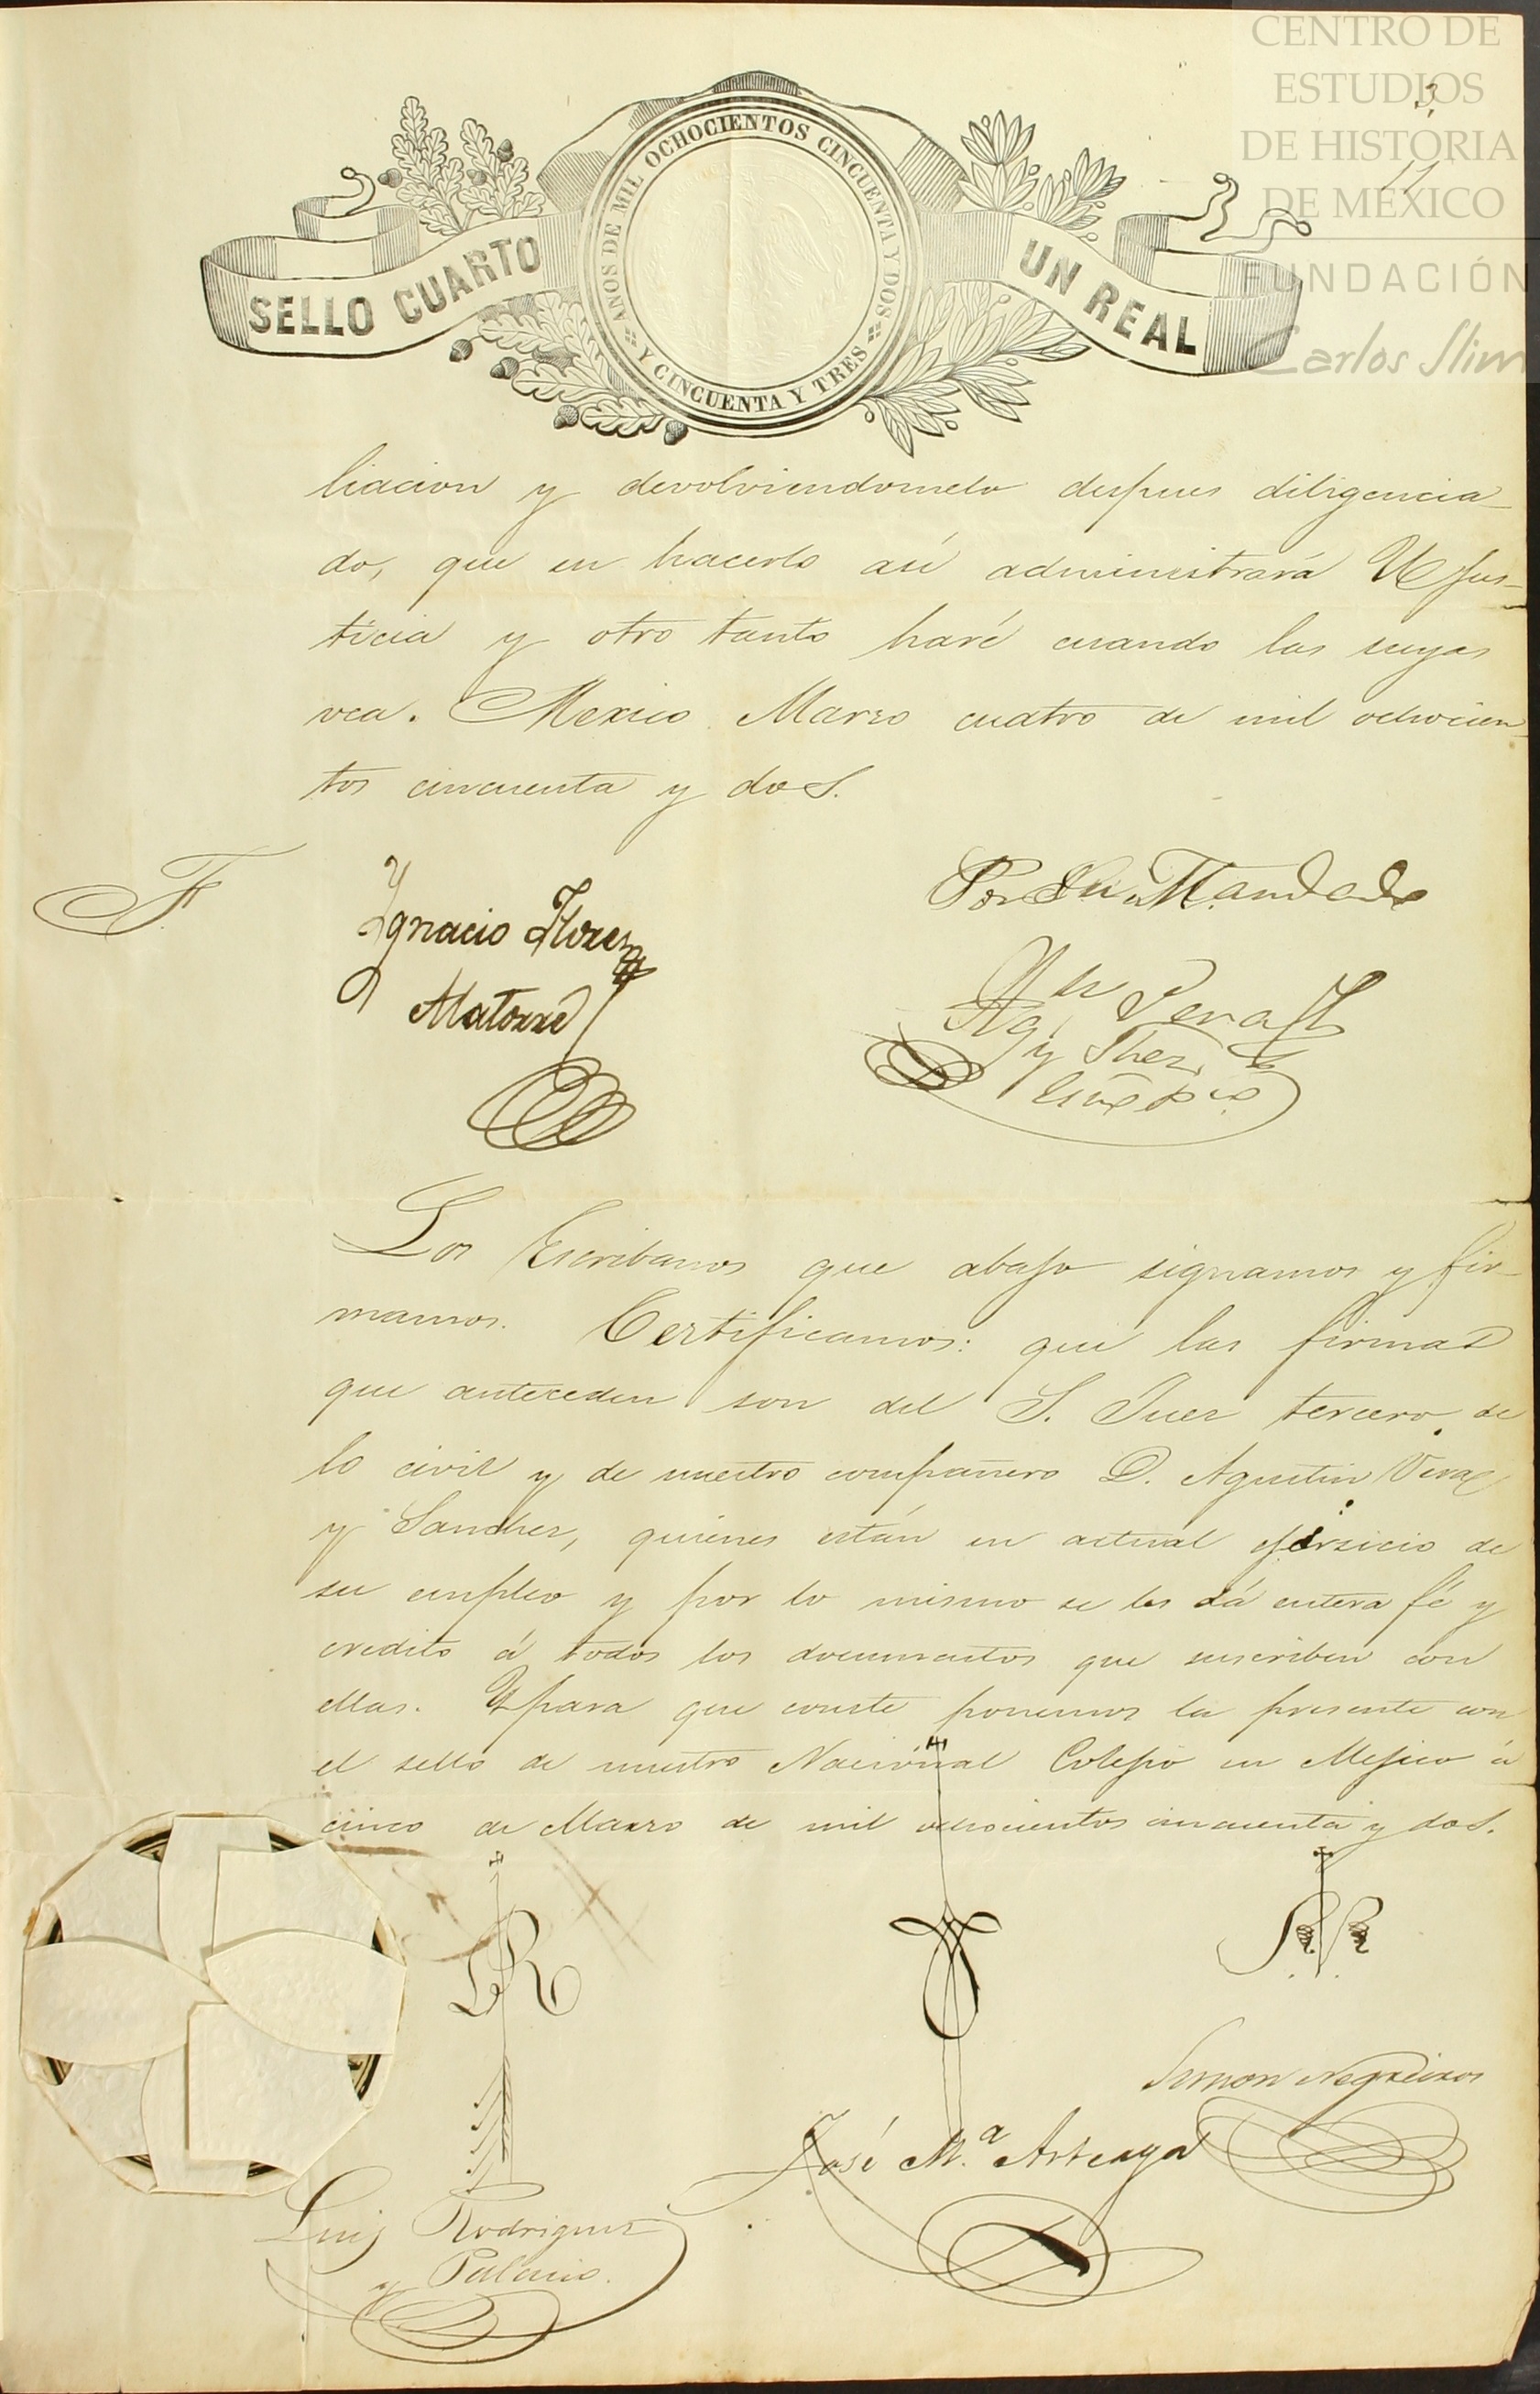 CENTRO DE
ESTUDIOS
DE HISTORIA
DE MÉXICO
FUNDACIÓN
Carlos Slim
3
11
SELLO CUARTO
AÑOS DE MIL OCHOCIENTOS CINCUENTA Y DOS
Y CINCUENTA Y TRES
UN REAL
liacion y devolviendomelo despues diligencia
do, que en hacerlo así administrará U jus-
ticia y otro tanto haré cuando las suyas
vea. Mexico Marzo cuatro de mil ochocien
tos cincuenta y doS.
F
Ygnacio Flores
Alatorre
Por Su Mandado
Agn Vera
y Shez
Los Escribanos que abajo signamos y fir-
mamos. Certificamos: que las firmas
que anteceden son del S. Juez tercero de
lo civil y de nuestro compañero D. Agustin Vera
y Sanchez, quienes están en actual ejersicio de
su empleo y por lo mismo se les dá entera fé y
credito á todos los documentos que suscriben con
ellas. Y para que conste ponemos la presente con
el sello de nuestro Nacional Colejio en Mejico á
cinco de Marzo de mil ochocientos cincuenta y doS.
LR
Simon Negreiros
José M.a Arteaga
Luis Rodriguez
y Palacio.